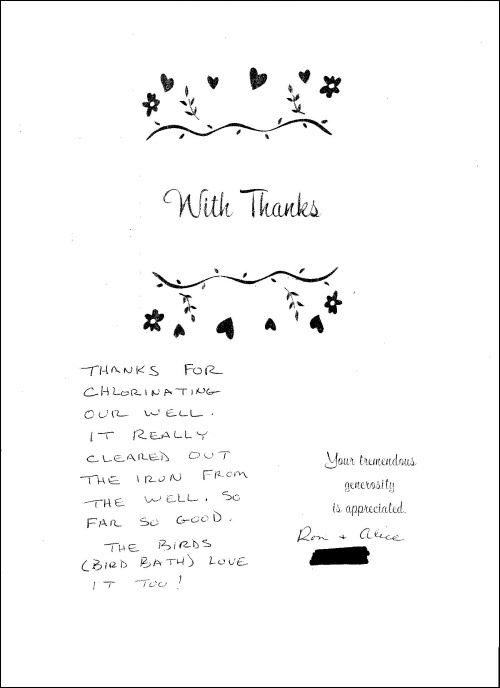 With Thanks
THANKS FOR
CHLORINATING
OUR WELL.
IT REALLY
CLEARED OUT
THE IRON FROM
THE WELL. SO
FAR SO GOOD.
THE BIRDS
(BIRD BATH) LOVE
IT TOO!
Your tremendous
generosity
is appreciated.
Ron + Alice